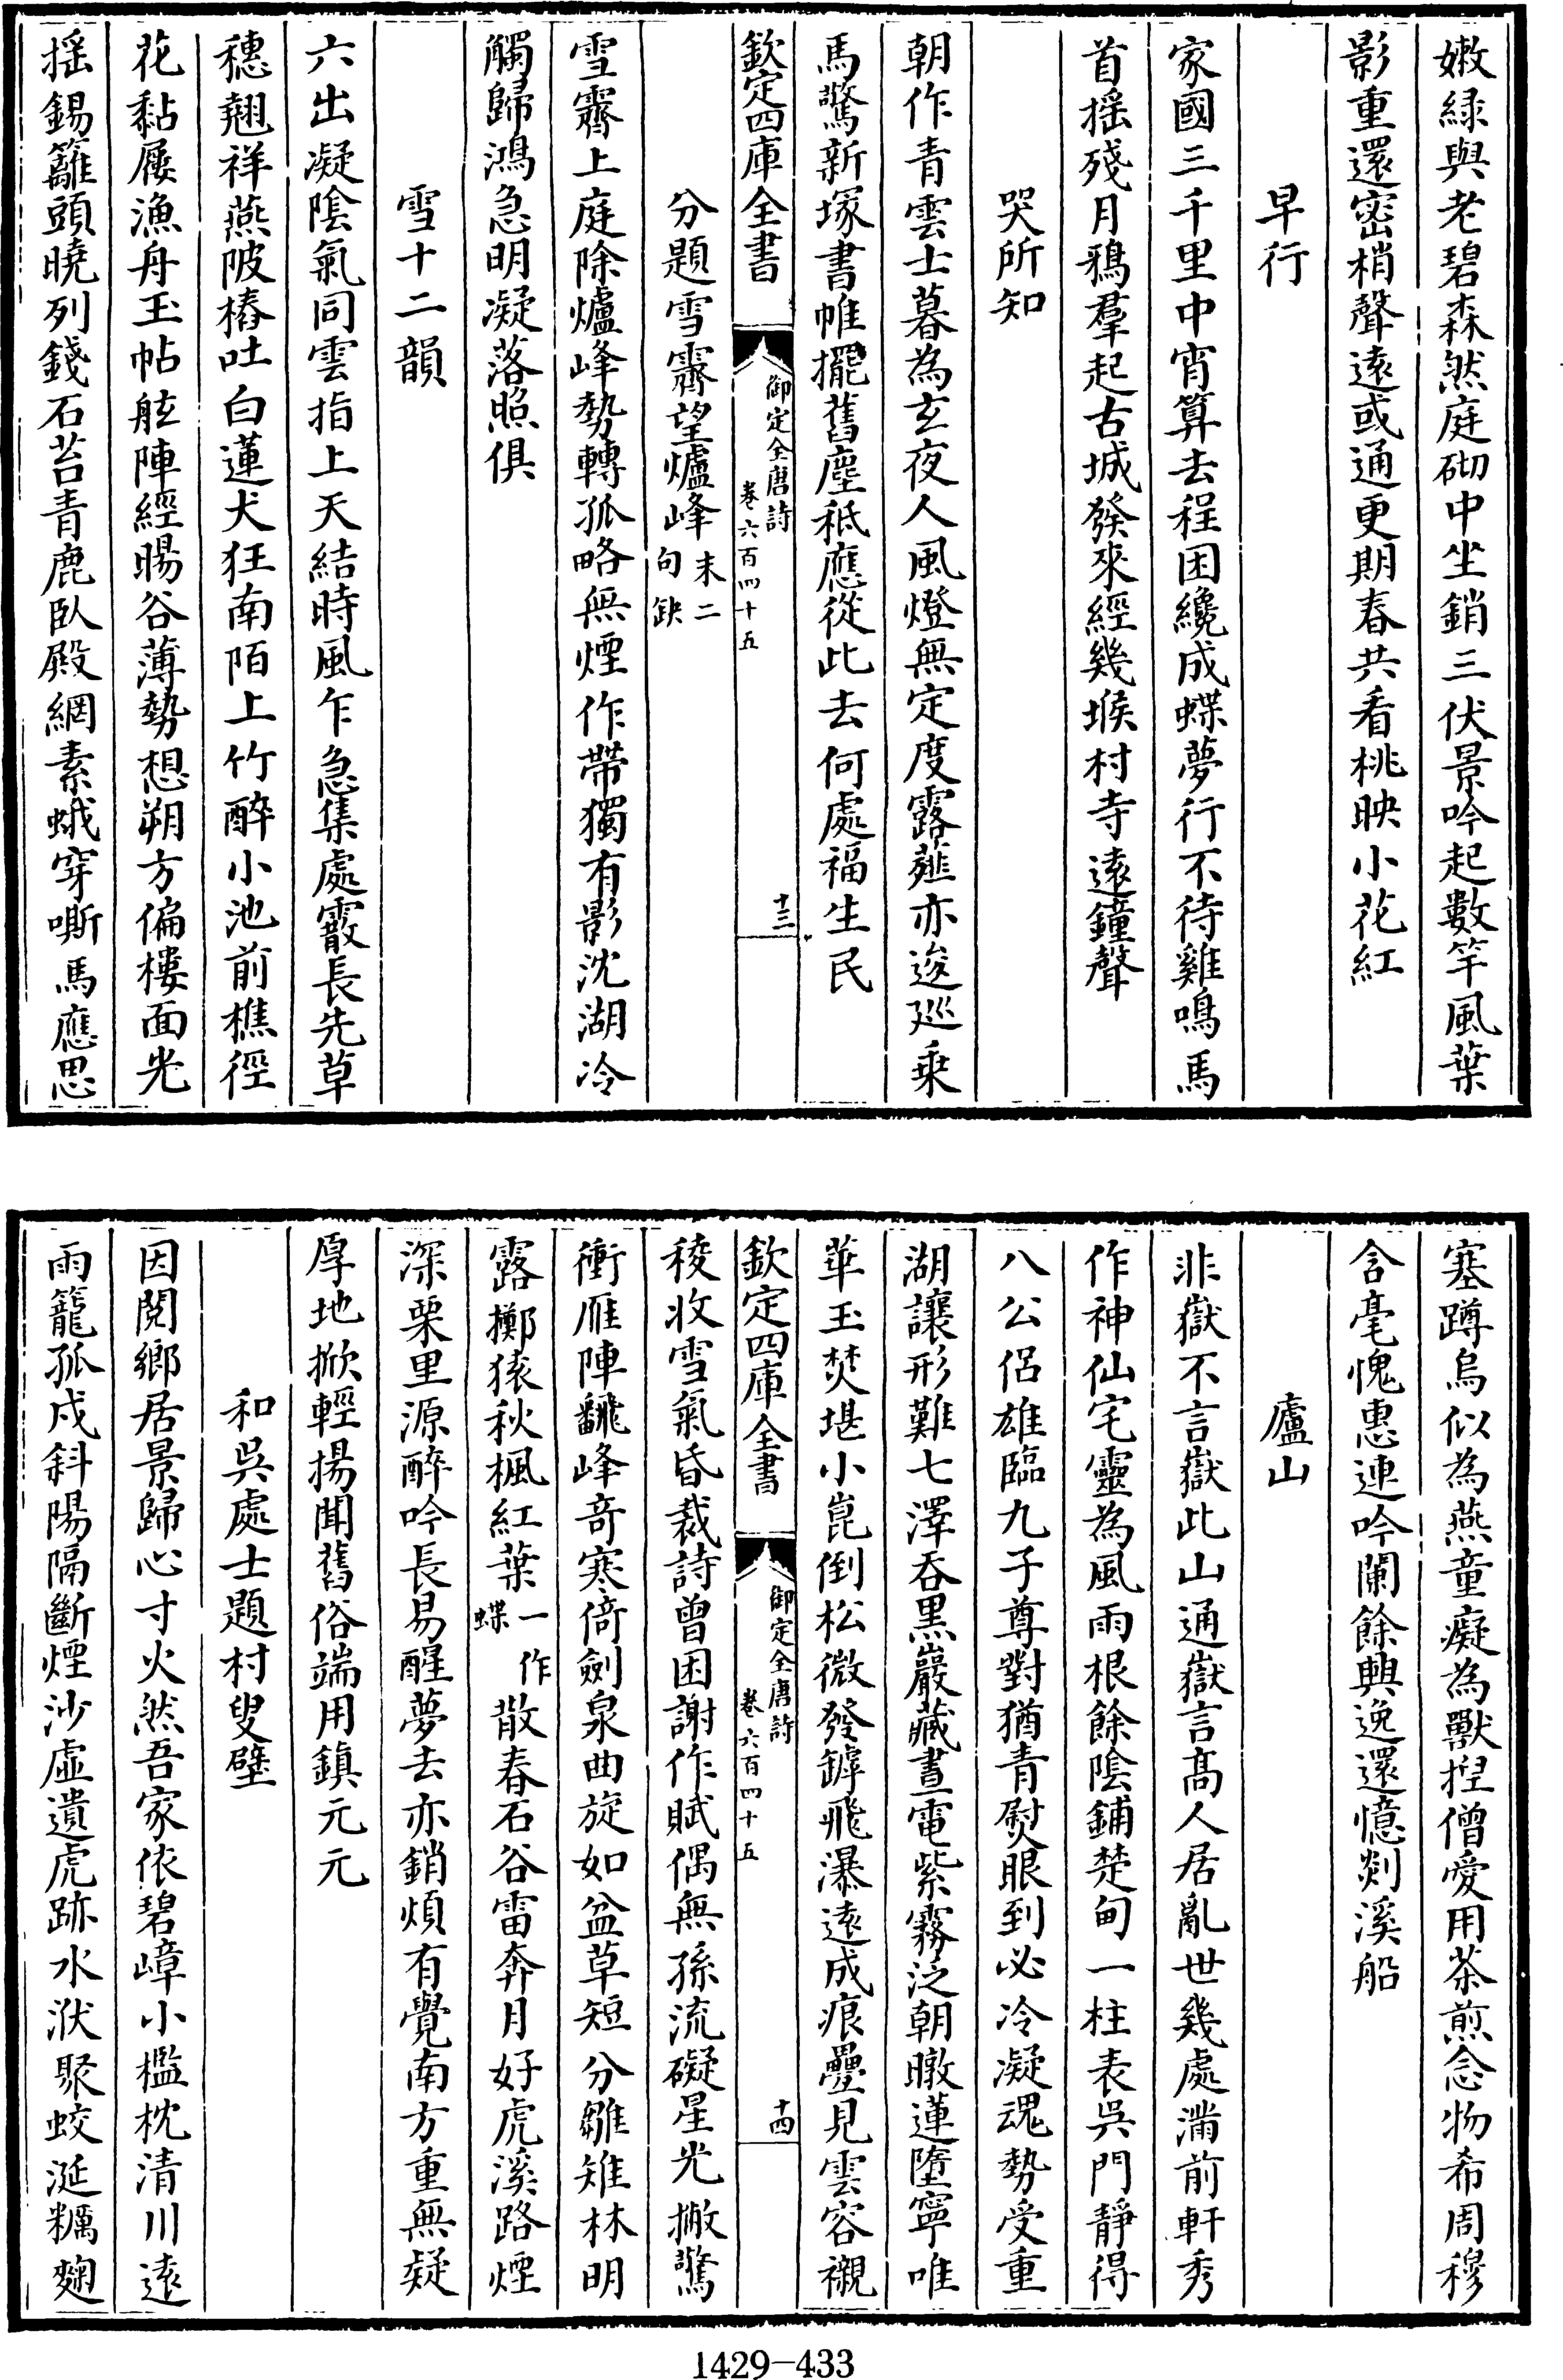 嫩緑與老碧森然庭砌中坐銷三伏景吟起數竿風葉
影重還密梢聲遠或通更期春共看桃映小花紅
早行
家國三千里中宵算去程困纔成蝶夢行不待雞鳴馬
首揺殘月鴉羣起古城發來經幾堠村寺遠鐘聲
哭所知
朝作青雲士暮為玄夜人風燈無定度露薤亦逡廵乗
馬驚新塚書帷擺舊塵秪應從此去何處福生民
欽定四庫全書
御定全唐詩
卷六百四十五
十三
分題雪霽望爐峰末二句缺
雪霽上庭除爐峰勢轉孤略無煙作帶獨有影沈湖冷
觸歸鴻急明凝落照俱
雪十二韻
六出凝陰氣同雲指上天結時風乍急集處霰長先草
穗翹祥燕陂樁吐白蓮犬狂南陌上竹醉小池前樵徑
花黏屐漁舟玉帖舷陣經暘谷薄勢想朔方偏樓面光
揺錫籬頭曉列錢石苔青鹿臥殿網素蛾穿嘶馬應思
塞蹲烏似為燕童癡為獸揑僧愛用茶煎念物希周穆
含毫愧惠連吟闌餘興逸還憶剡溪船
廬山
非嶽不言嶽此山通嶽言髙人居亂世幾處滿前軒秀
作神仙宅靈為風雨根餘陰鋪楚甸一柱表吳門靜得
八公侶雄臨九子尊對猶青熨眼到必冷凝魂勢受重
湖讓形難七澤吞黒巖藏晝電紫霧泛朝暾蓮墮寧唯
華玉焚堪小崑倒松微發罅飛瀑遠成痕疊見雲容襯
欽定四庫全書
御定全唐詩
卷六百四十五
十四
稜收雪氣昏裁詩曾困謝作賦偶無孫流礙星光撇驚
衝雁陣翻峰奇寒倚劍泉曲旋如盆草短分雛雉林明
露擲猿秋楓紅葉一作蝶散春石谷雷奔月好虎溪路煙
深栗里源醉吟長易醒夢去亦銷煩有覺南方重無疑
厚地掀輕揚聞舊俗端用鎮元元
和吳處士題村叟壁
因閱鄉居景歸心寸火然吾家依碧嶂小檻枕清川遠
雨籠孤戍斜陽隔斷煙沙虛遺虎跡水洑聚蛟涎糲麴
1429-433